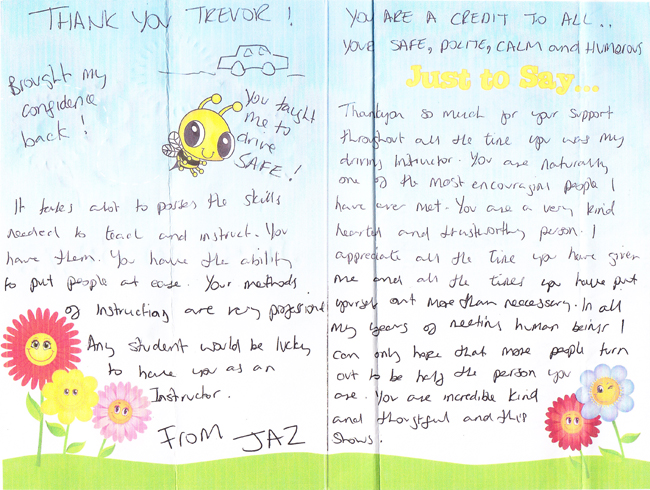 THANK YOU TREVOR !
Brought my
confidence
back !
You taught
me to
drive
SAFE !
It takes alot to posses the skills
needed to teach and instruct. You
have them. You have the ability
to put people at ease. Your methods
of Instruction are very professional
Any student would be lucky
to have you as an
Instructor.
From JAZ
YOU ARE A CREDIT TO ALL..
YOUR SAFE, POLITE, CALM and HUMOROUS
Just to Say...
Thankyou so much for your support
throughout all the time you was my
driving Instructor. You are naturally
one of the most encouraging people I
have ever met. You are a very kind
hearted and trustworthy person. I
appreciate all the time you have given
me and all the times you have put
yourself out more than neccessary. In all
my years of meeting human beings I
can only hope that more people turn
out to be half the person you
are. You are incredible kind
and thoughtful and this
shows.